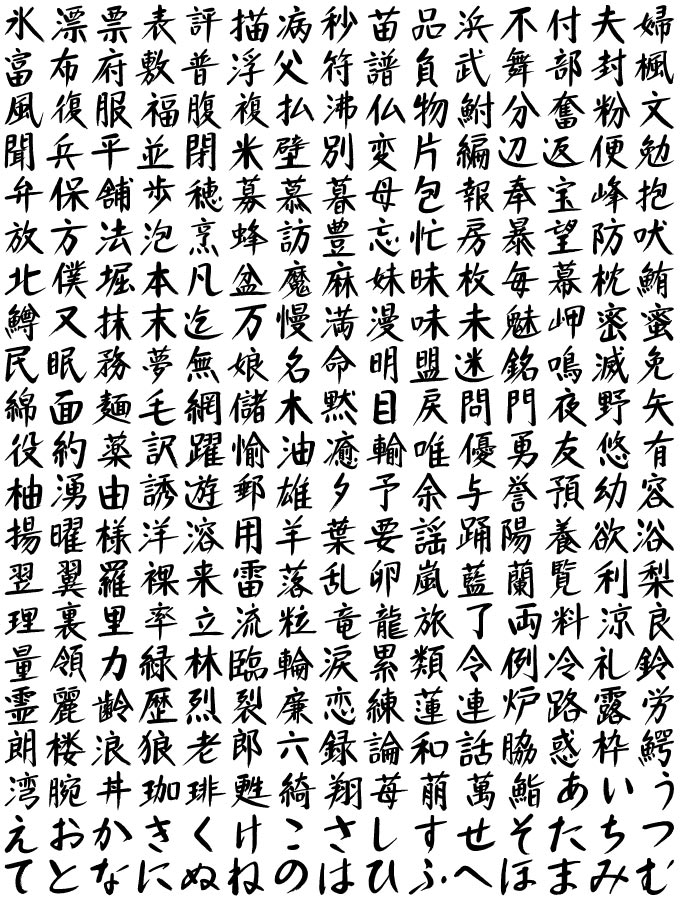 氷漂票表評描病秒苗品浜不付夫婦
富布府敷普浮父符譜負武舞部封楓
風復服福腹複払沸仏物鮒分奮粉文
聞兵平並閉米壁別変片編辺返便勉
弁保舗歩穂募慕暮母包報奉宝峰抱
放方法泡烹蜂訪豊忘忙房暴望防吠
北僕堀本凡盆魔麻妹昧枚毎幕枕鮪
鱒又抹末迄万慢満漫味未魅岬密蜜
民眠務夢無娘名命明盟迷銘鳴滅免
綿面麺毛網儲木黙目戻問門夜野矢
役約薬訳躍愉油癒輸唯優勇友悠有
柚湧由誘遊郵雄夕予余与誉預幼容
揚曜様洋溶用羊葉要謡踊陽養欲浴
翌翼羅裸来雷落乱卵嵐藍蘭覧利梨
理裏里率立流粒竜龍旅了両料涼良
量領力緑林臨輪涙累類令例冷礼鈴
霊麗齢歴烈裂廉恋練蓮連炉路露労
朗楼浪狼老郎六録論和話脇惑枠鰐
湾腕丼珈琲甦綺翔苺萌萬鮨あいう
えおかきくけこさしすせそたちつ
てとなにぬねのはひふへほまみむ